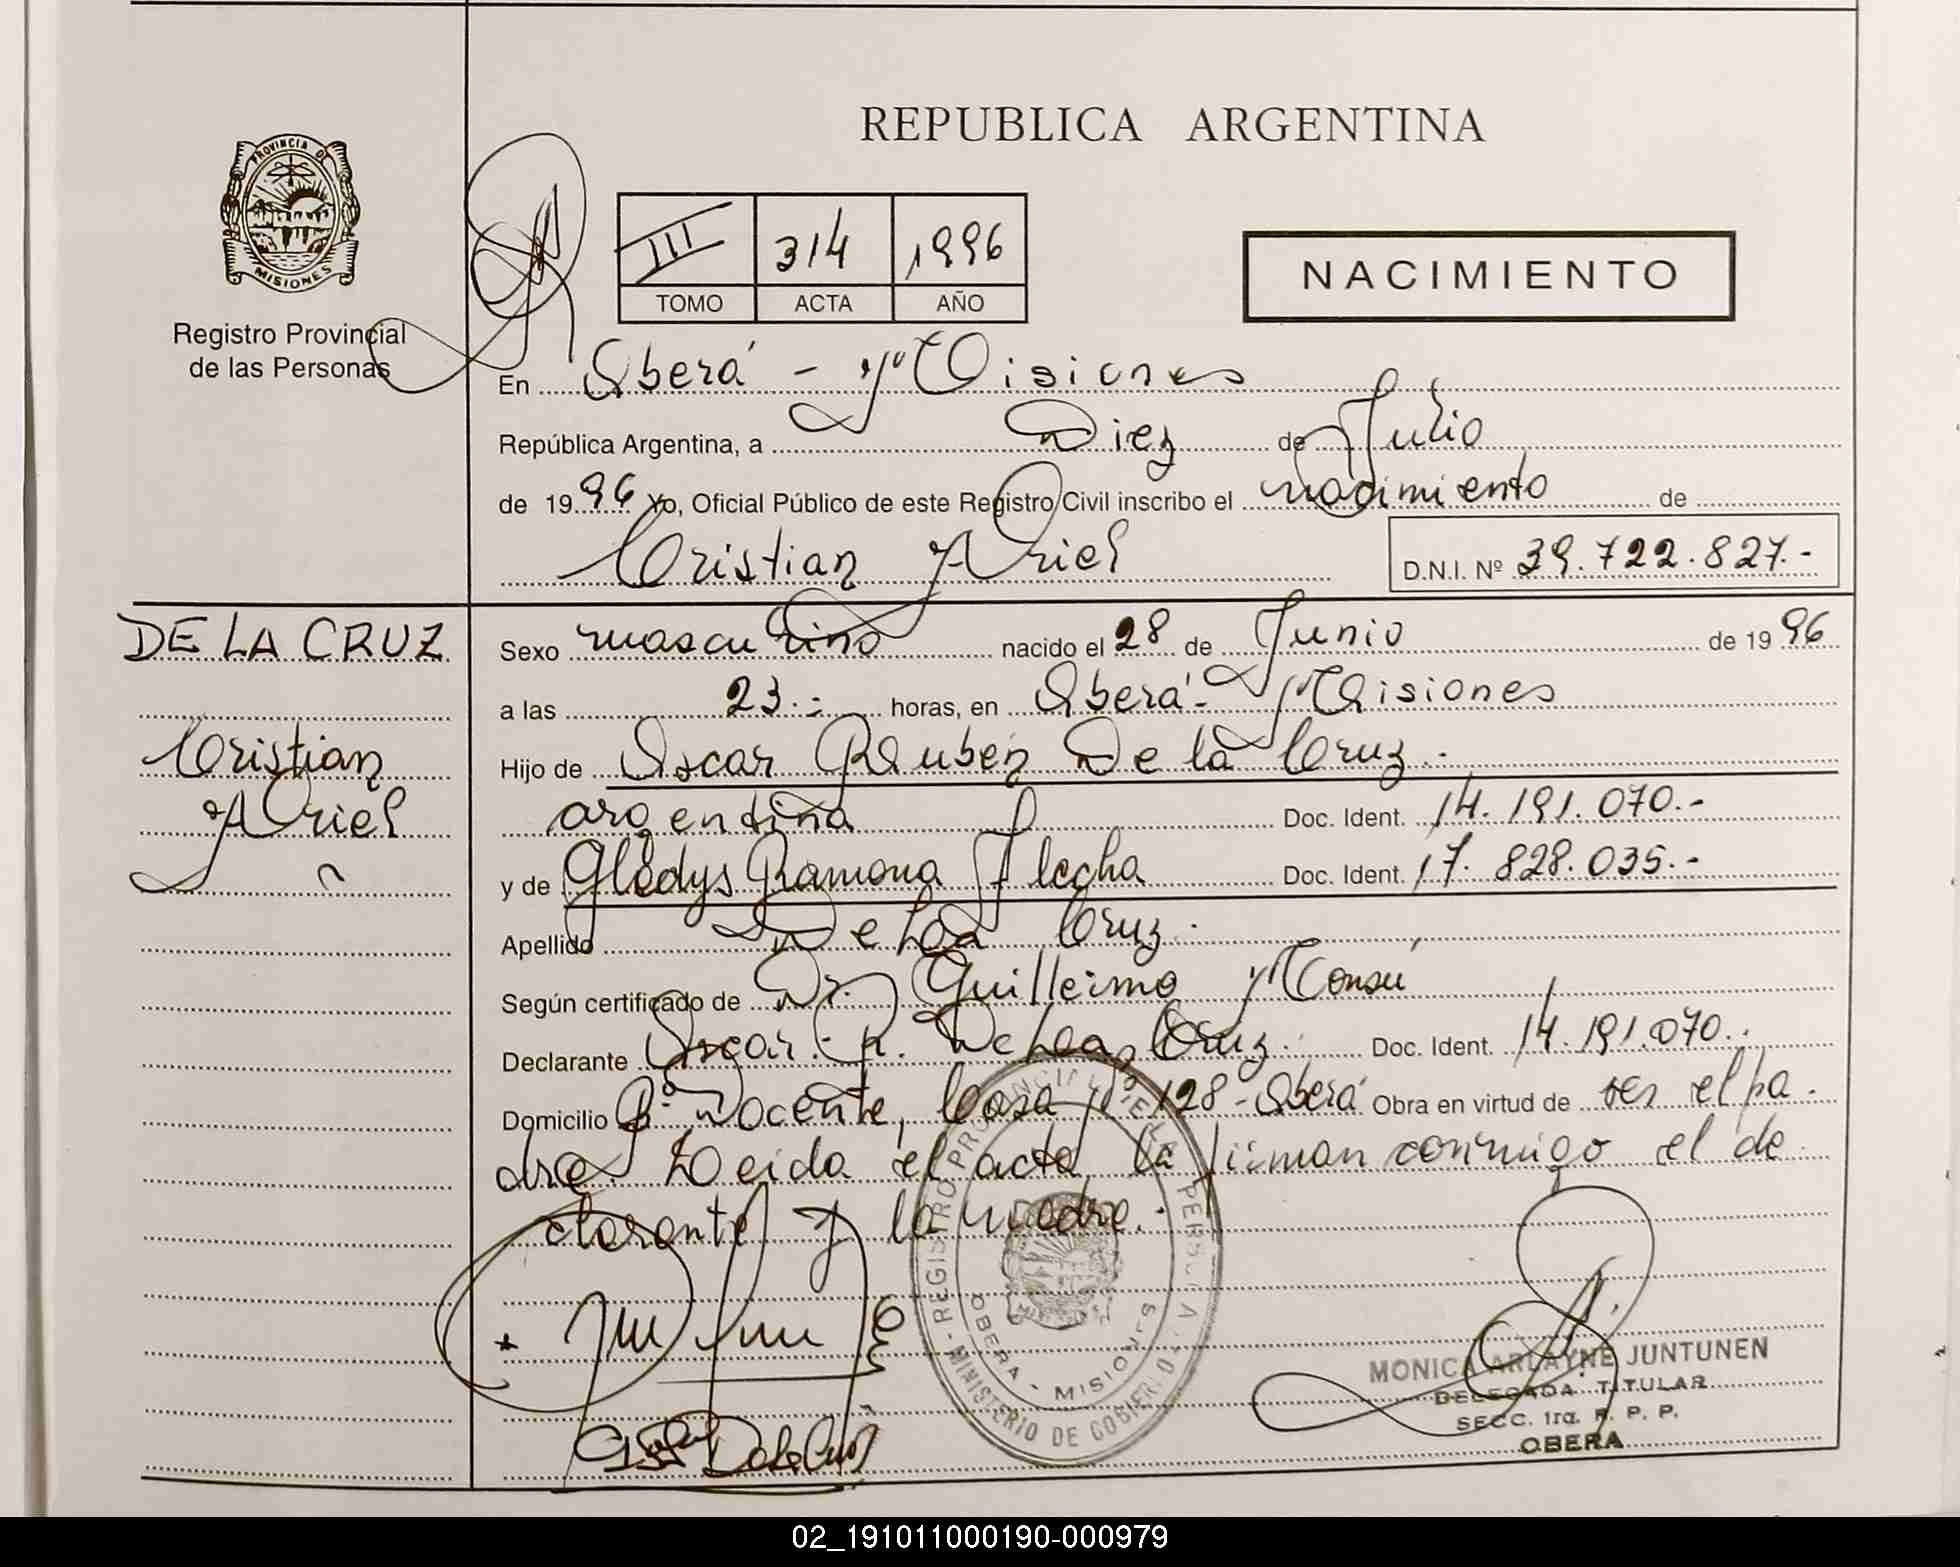 REPUBLICA ARGENTINA
PROVINCIA DE
MISIONES
Registro Provincial
de las Personas
III 314 1996
TOMO ACTA AÑO
NACIMIENTO
En Oberá - Misiones
República Argentina, a Diez de Julio
de 1996 Yo, Oficial Público de este Registro Civil inscribo el nacimiento de
Cristian Ariel
D.N.I. Nº 39.722.827.-
DE LA CRUZ
Cristian
Ariel
Sexo masculino nacido el 28 de Junio de 1996
a las 23.- horas, en Oberá - Misiones
Hijo de Oscar Ruben De la Cruz.
argentina Doc. Ident. 14.191.070.-
y de Gladys Ramona Flecha Doc. Ident. 17.828.035.-
Apellido De La Cruz.
Según certificado de Dr. Guillermo
Declarante Oscar R. De La Cruz. Doc. Ident. 14.191.070.
Domicilio Bº Docente, Casa Nº 128 - Oberá Obra en virtud de ser el pa
dre. Leida el acta la firman conmigo el de
clarante y la madre.
REGISTRO PROVINCIAL DE LA
MINISTERIO DE GOBIERNO
OBERA - MISIONES
MONICA ARLAYNE JUNTUNEN
DELEGADA TITULAR
SECC. 1ra. R. P. P.
OBERA
02_191011000190-000979